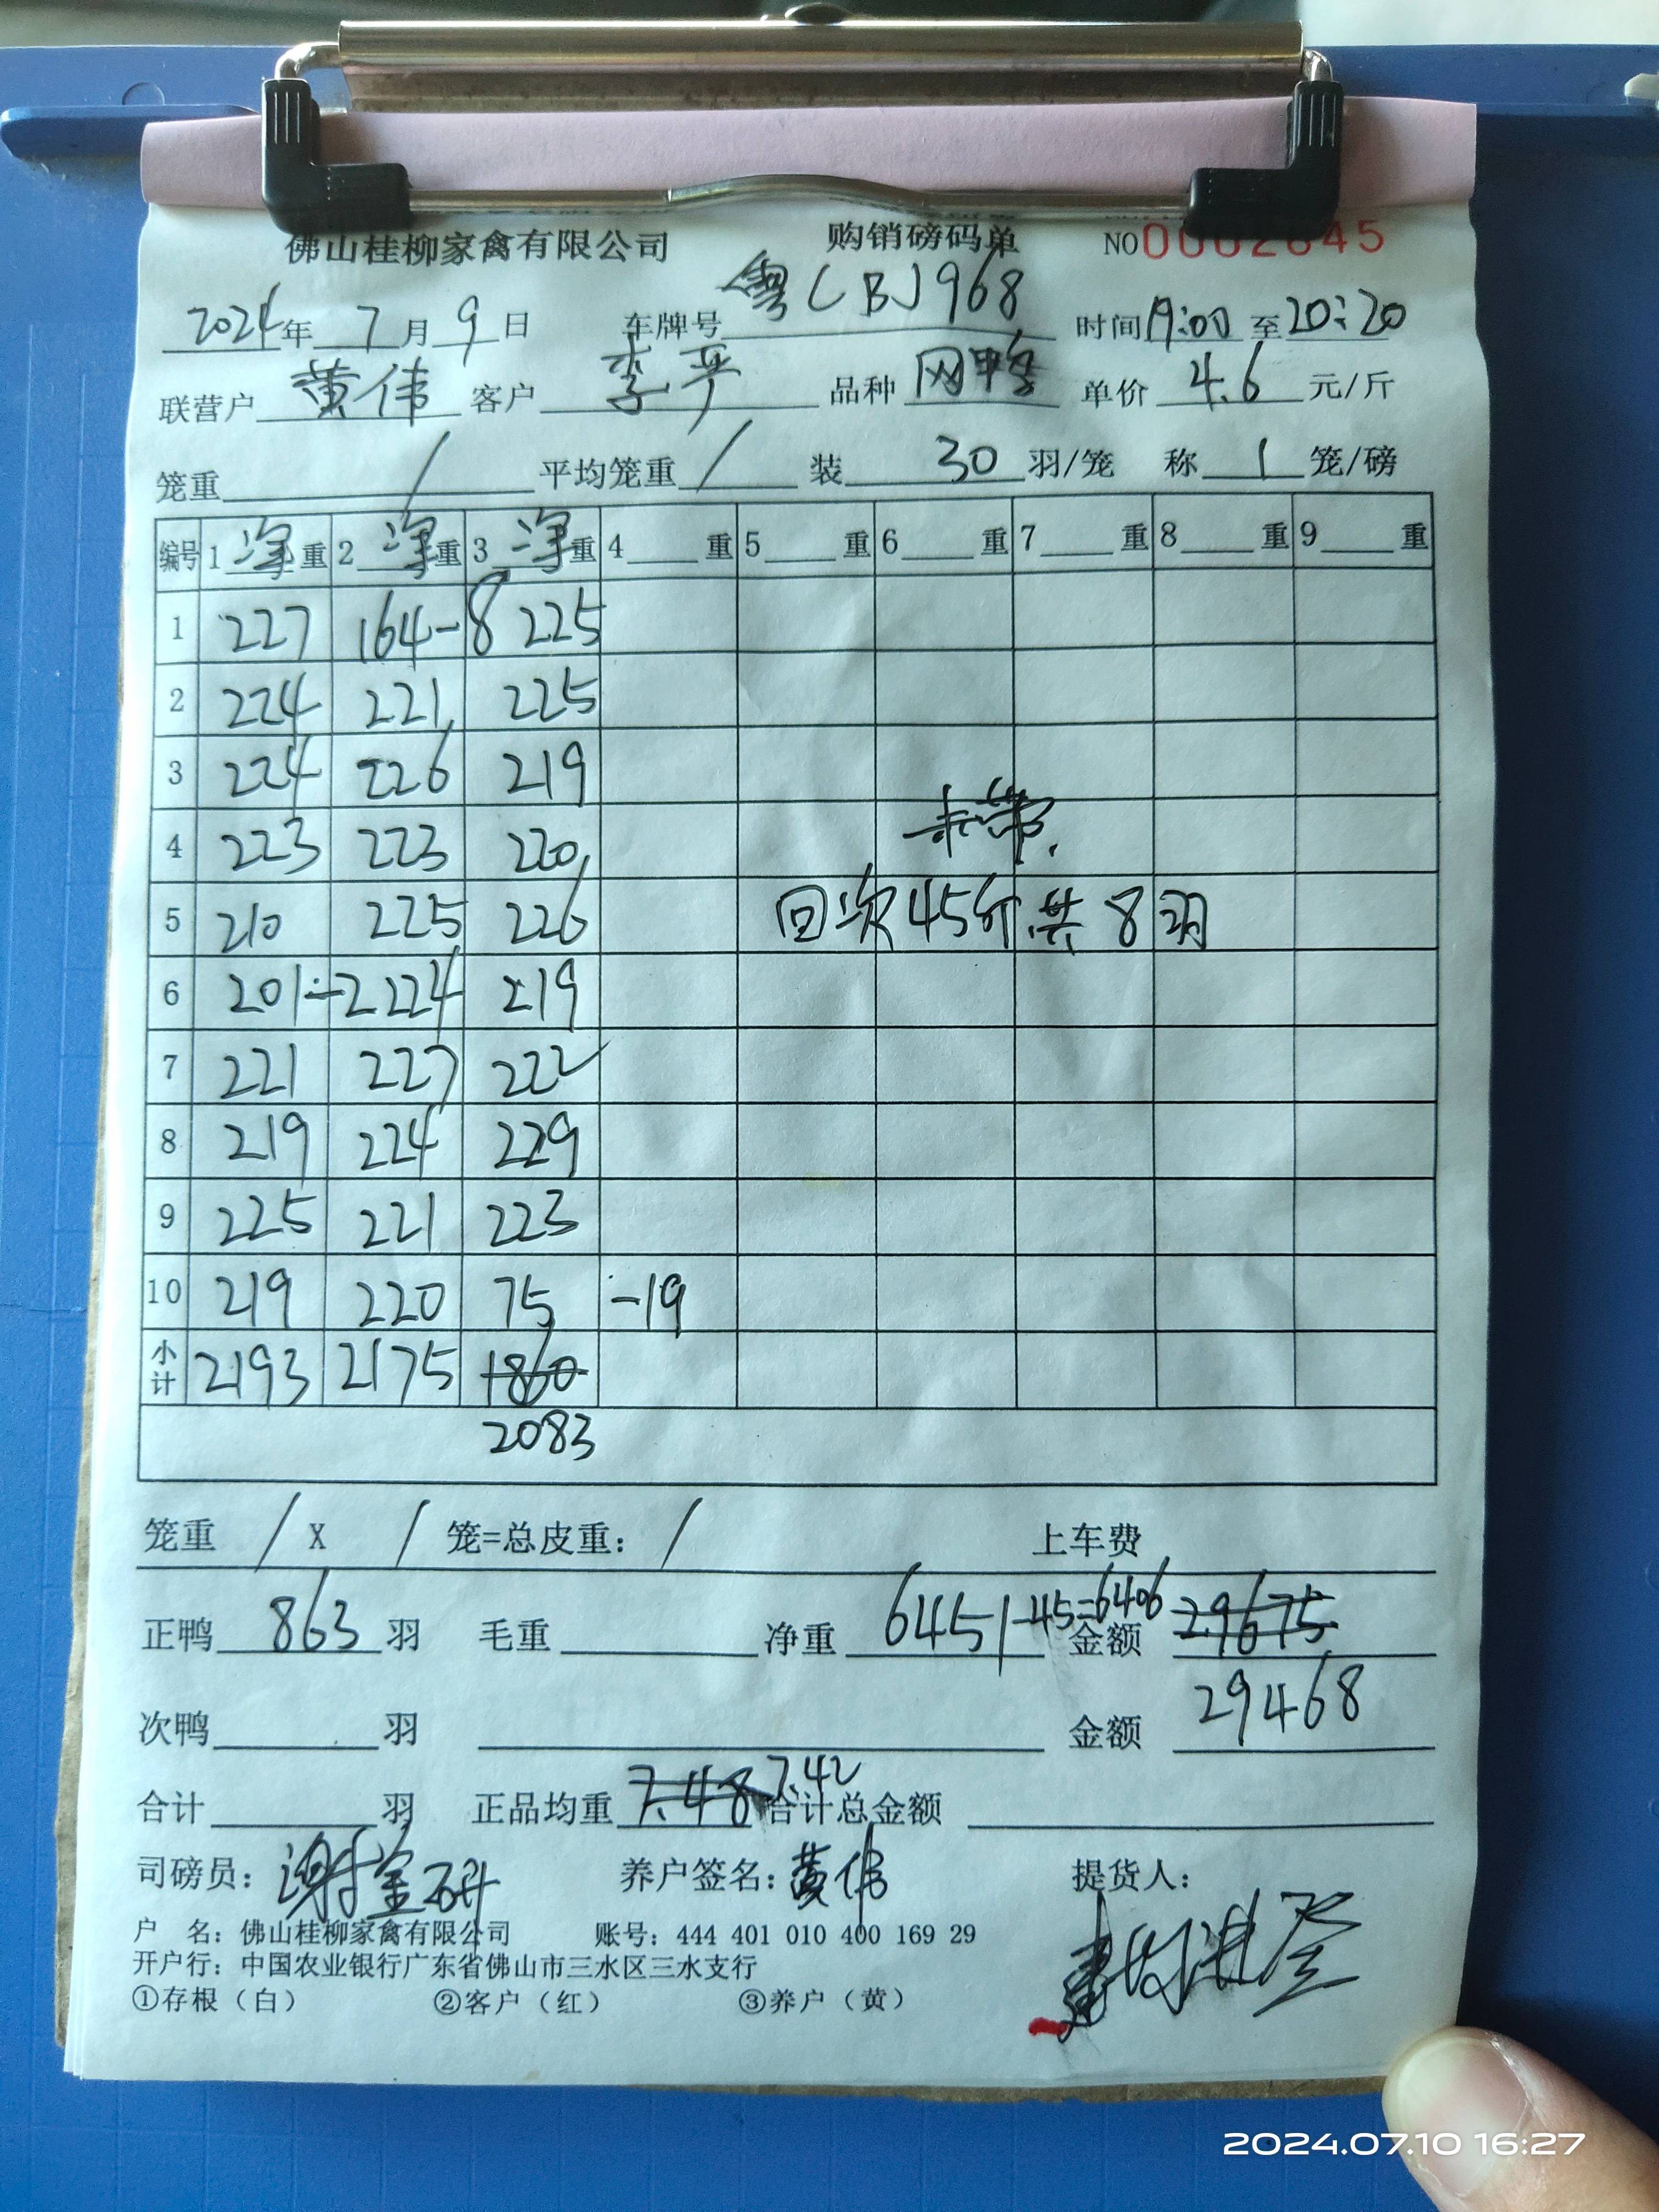 佛山桂柳家禽有限公司 购销磅码单 NO0002645
2024年 7 月 9 日 车牌号 粤CBJ968 时间19:00 至20:20
联营户 黄伟 客户 李严 品种 网鸭 单价 4.6 元/斤
笼重 / 平均笼重 / 装 30 羽/笼 称 1 笼/磅
编号 1 净 重 2 净 重 3 净 重 4 重 5 重 6 重 7 重 8 重 9 重
1 227 164-8 225
2 224 221 225
3 224 226 219
4 223 223 220 未带.
5 210 225 226 回次45斤共8羽
6 201-2 224 219
7 221 227 222
8 219 224 229
9 225 221 223
10 219 220 75 -19
小计 2193 2175 1860
2083
笼重 / X / 笼=总皮重: / 上车费
正鸭 863 羽 毛重 净重 6451-45=6406 金额 29675
次鸭 羽 金额 29468
合计 羽 正品均重 7.48 7.42 合计总金额
司磅员: 谢金研 养户签名: 黄伟 提货人:
户 名: 佛山桂柳家禽有限公司 账号: 444 401 010 400 169 29
开户行: 中国农业银行广东省佛山市三水区三水支行
①存根（白） ②客户（红） ③养户（黄）
2024.07.10 16:27